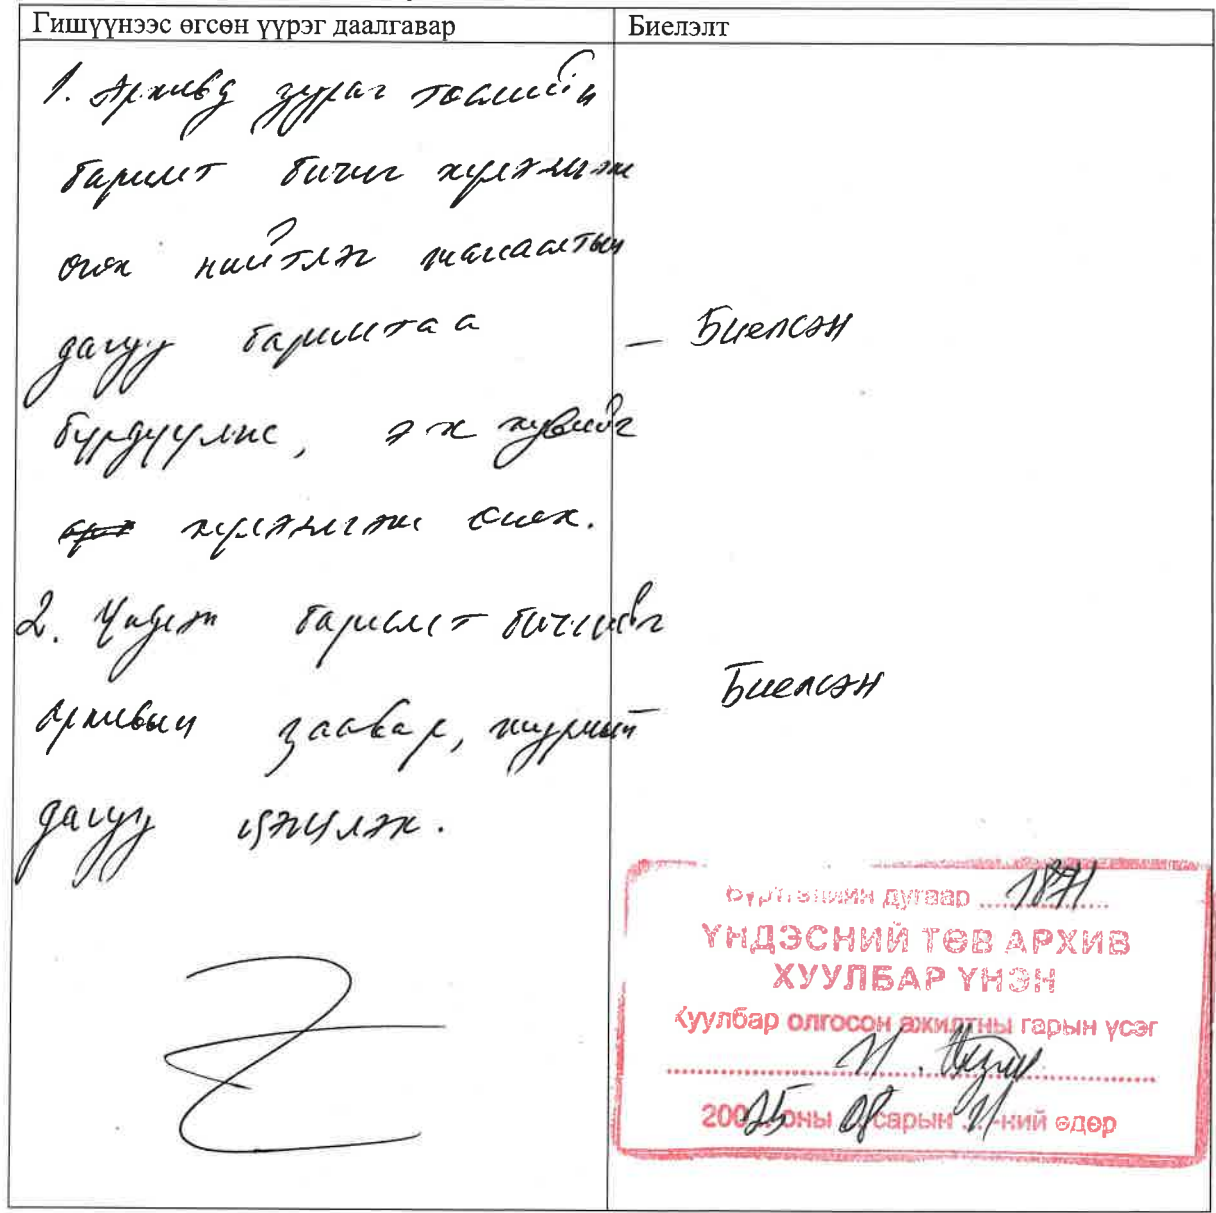 Гишүүнээс өгсөн үүрэг даалгавар
Биелэлт
1. Архивд зураг төслийн
баримт бичиг хүлээлгэж
өгөх нийтлэг жагсаалтын
дагуу баримтаа
бүрдүүлж, эх хувийг
хүлээлгэж өгөх.
— Биелсэн
2. Үндсэн баримт бичгийг
архивын заавар, журмын
дагуу үйлдэх.
— Биелсэн
Бүртгэлийн дугаар 1871
ҮНДЭСНИЙ ТӨВ АРХИВ
ХУУЛБАР ҮНЭН
Хуулбар олгосон ажилтны гарын үсэг
2025 оны 08 сарын 21-ний өдөр